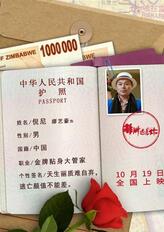 OF ZIMBABWE
1000000
中华人民共和国
护照
PASSPORT
姓名/倪尼 廖艺豪
性别/男
国籍/中国
职业/金牌贴身大管家
个性签名/天生丽质难自弃,
逃亡颜值不能差。
10月19日
全国上映